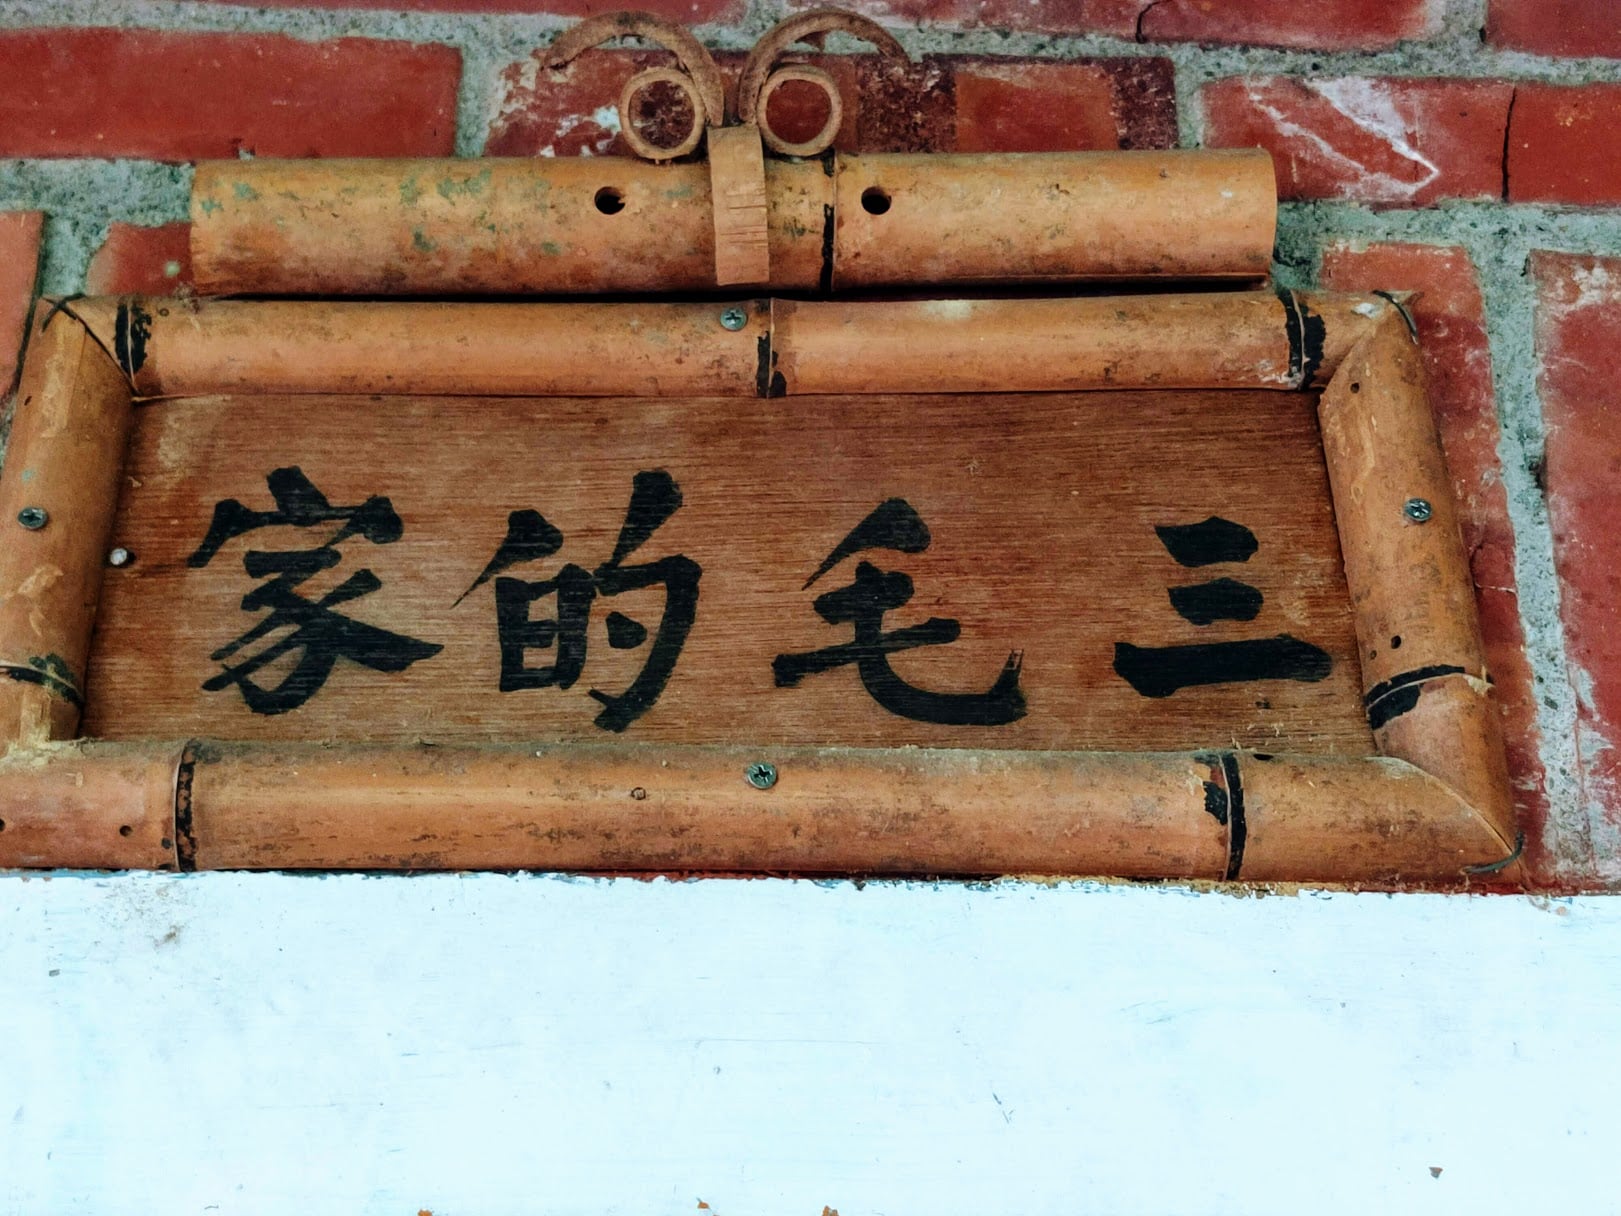 三毛的家